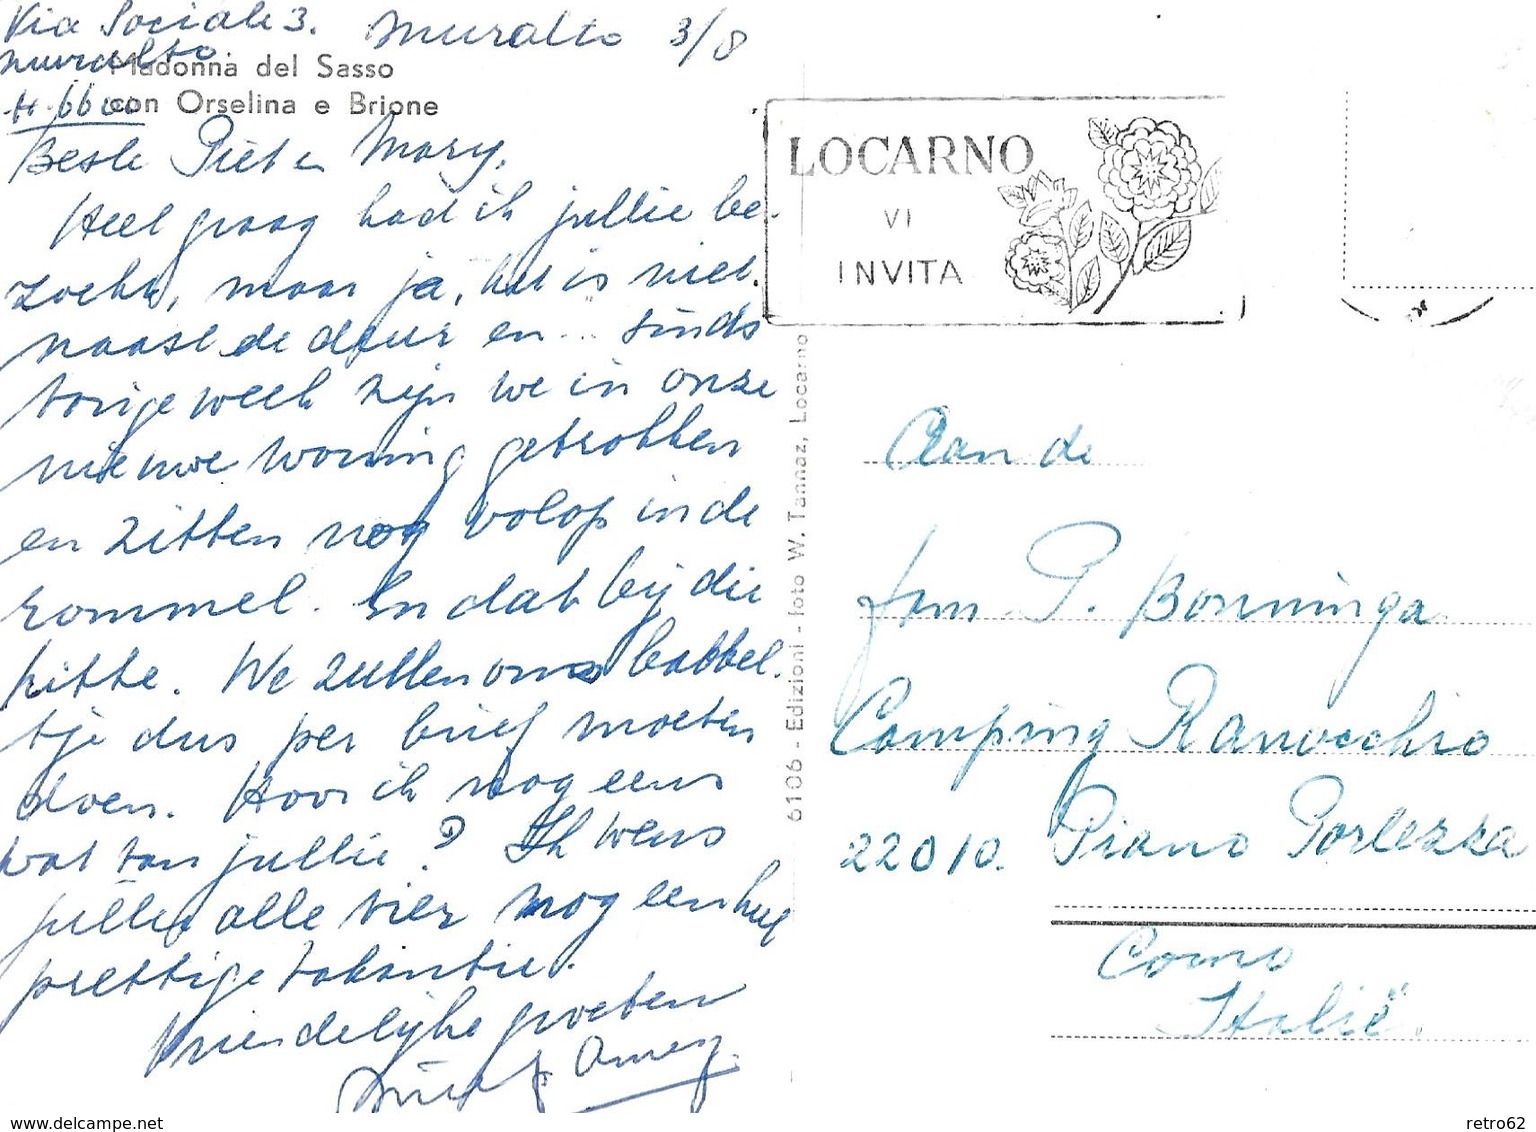 Via Sociale 3. Muralto 3/8
Muralto.
Madonna del Sasso
6600
con Orselina e Brione
Beste Piet en Mary,
Heel graag had ik jullie be-
zoeken, maar ja, het is niet
naast de deur en ... sinds
vorige week zijn we in onze
nieuwe woning getrokken
en zitten nog volop in de
rommel. En dat bij die
hitte. We zullen ons babbel-
tje dus per brief moeten
doen. Hoor ik nog eens
wat van jullie? Ik wens
jullie alle vier nog een heel
prettige vakantie.
Vriendelijke groeten
LOCARNO
VI
INVITA
6106 - Edizioni - foto W. Tannaz, Locarno
Aan de
fam P. Bonninga
Camping Ranocchio
22010. Piano Porlezza
Como
Italië.
www.delcampe.net
retro62